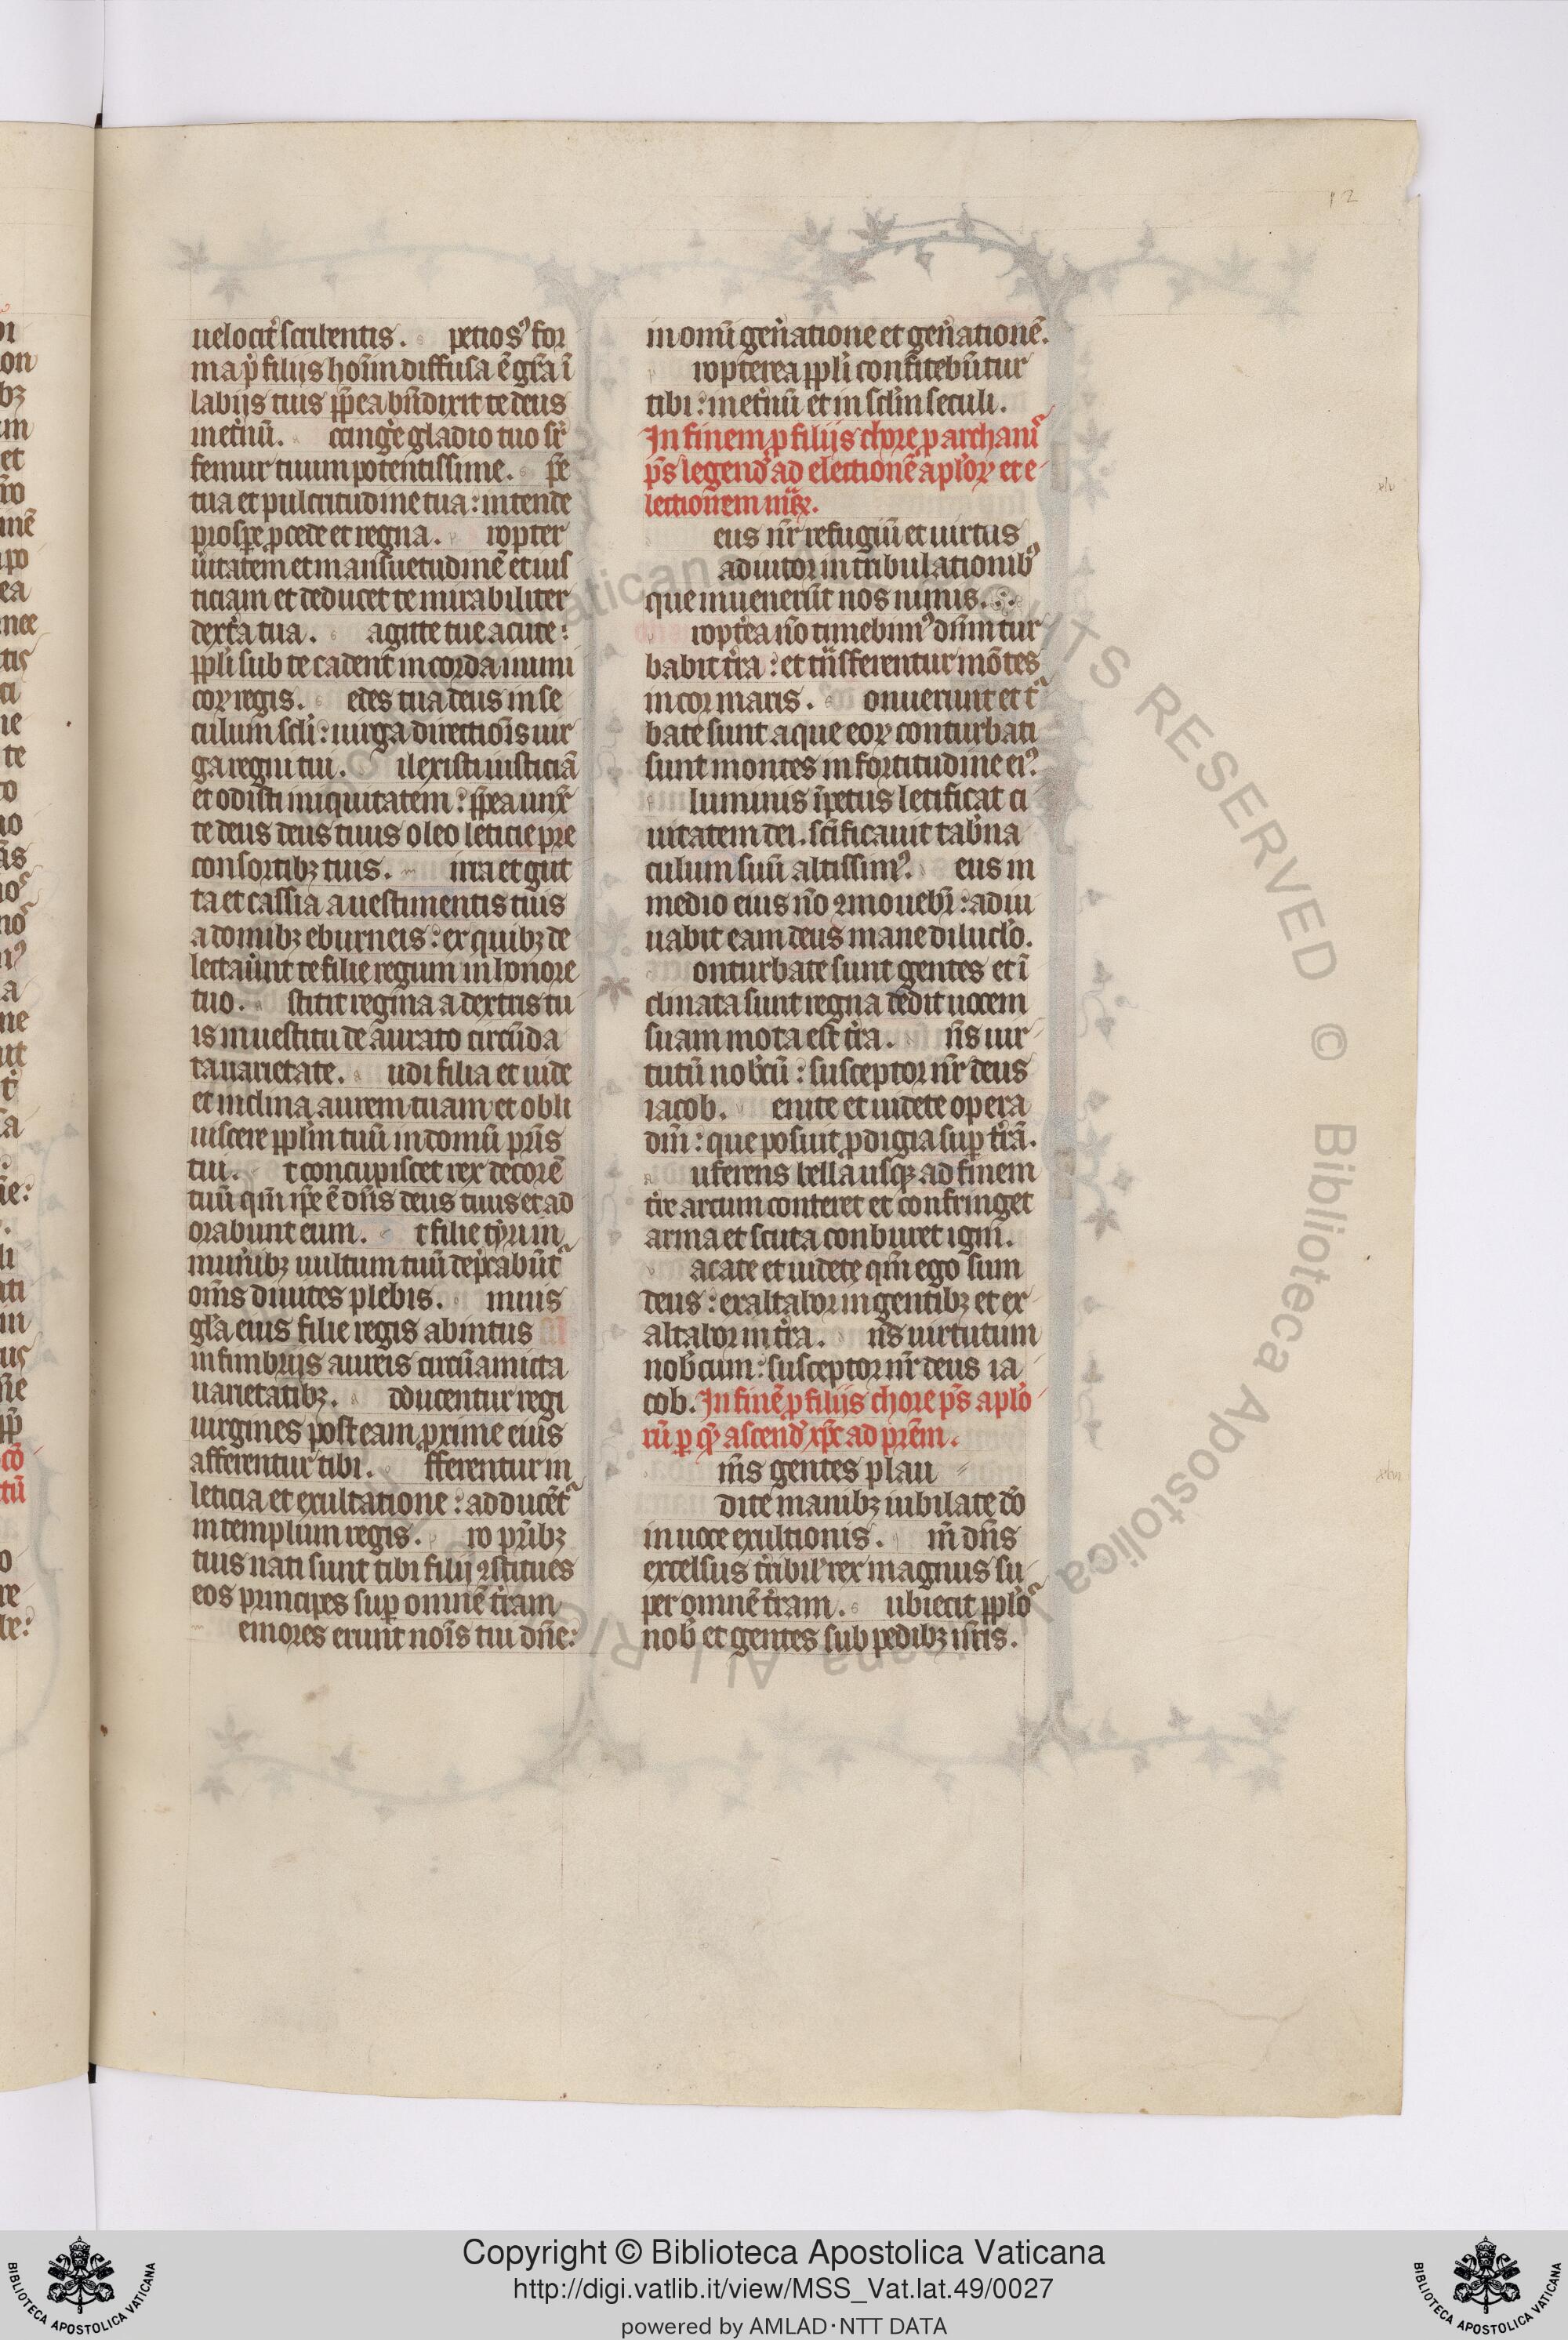 12
uelocit̉ scribentis. petios⁹ for
ma p̉ filiis hoīm diffusa ē gr̄a ī
labijs tuis ꝓp̄ea bn̄dixit te deus
inet̉nū. ccinge̾ gladio tuo sr̄
femur tuum potentissime. pe̅
tua et pulcritudine tua: intende
prosꝑe ꝓcede et regna. ropter
ūitatem et mansuetudinē et ius
ticiam et deducet te mirabiliter
dext̉a tua. agitte tue acute:
ppl̉i sub te cadent̃ in corda inimi
coꝝ regis. edes tua deus in se
culum scl̉i: uirga directiōis uir
ga regni tui. ilexisti iusticiā
et odisti iniquitatem: ꝓp̄ea unx̄
te deus deus tuus oleo leticie pre
consortibꝫ tuis. irra et gut
ta et cassia a uestimentis tuis
a domibꝫ eburneis: ex quibꝫ de
lectau̾unt te filie regum in honore
tuo. stitit regina a dextris tu
is in uestitu deaurato circūda
ta uarietate. udi filia et uide
et inclina aurem tuam et obli
uiscere ppl̉m tuū in domū pr̄is
tui. t concupiscet rex decorē
tuū qm̄ ip̄e ē dn̄s deus tuus et ad
orabunt eum. t filie tyri in
mun̉ibꝫ uultum tuū dep̉cabūt̃
om̄s diuites plebis. mnis
gl̉a eius filie regis abintus
in fimbrijs aureis circūamicta
uarietatibꝫ. dducentur regi
uirgines post eam ꝓxime eius
afferentur tibi. fferentur in
leticia et exultatione: adducēt̃
in templum regis. ro pr̄ibꝫ
tuis nati sunt tibi filij ꝯstitues
eos principes suꝑ omnē t̉ram
emores erunt noīs tui dn̄e:
in omī gen̉atione et gen̉ationē.
ropterea ppl̉i confitebūtur
tibi: inet̉nū et in scl̉m seculi.
In finem ꝓ filijs chore ꝓ archanı̃
ps̄ legend̉ ad electionē apl̉oꝝ et e
lectionem
eus nr̄ refugiū et uirtus
adiutor in tribulationib⁹
que inuenerūt nos nimis.
ropt̉ea nō timebim⁹ dum tur
babit̃ t̉ra: et trāsferentur mōtes
in cor maris. onuerunt et t̃
bate sunt aque eoꝝ conturbati
sunt montes in fortitudine ei⁹.
luminis īpetus letificat ci
uitatem dei. scīficauit tab̉na
culum suū altissim⁹. eus in
medio eius nō ꝯmouebr̃: adiu
uabit eam deus mane dilucl̉o.
onturbate sunt gentes et ī
clinata sunt regna dedit uocem
suam mota est t̉ra. n̄s uir
tutū nob̉cū: susceptor nr̄ deus
iacob. enite et uidete opera
dn̄i: que posuit ꝓdigia suꝑ t̉rā.
uferens bella usqꝫ ad finem
t̉re arcum conteret et confringet
arma et scuta conburet igni.
acate et uidete qm̄ ego sum
deus: exaltabor in gentibꝫ et ex
altabor in t̉ra. n̄s uirtutum
nob̉cum: susceptor nr̄ deus ia
cob. In finē ꝓ filijs chore ps̄ apl̉o
rū ꝑ qͥ ascend̉ xp̄c ad prēm.
m̄s gentes plau
dite manibꝫ iubilate dō
in uoce exultionis. m̄ dn̄s
excelsus t̉ribil̉ rex magnus su
per omnē t̉ram. ubiecit ppl̉o
nob̉ et gentes sub pedibꝫ nr̄is.
xlv
xlvi
© Biblioteca Apostolica Vaticana ALL RIGHTS RESERVED
Copyright © Biblioteca Apostolica Vaticana
http://digi.vatlib.it/view/MSS_Vat.lat.49/0027
powered by AMLAD·NTT DATA
BIBLIOTECA APOSTOLICA VATICANA
BIBLIOTECA APOSTOLICA VATICANA